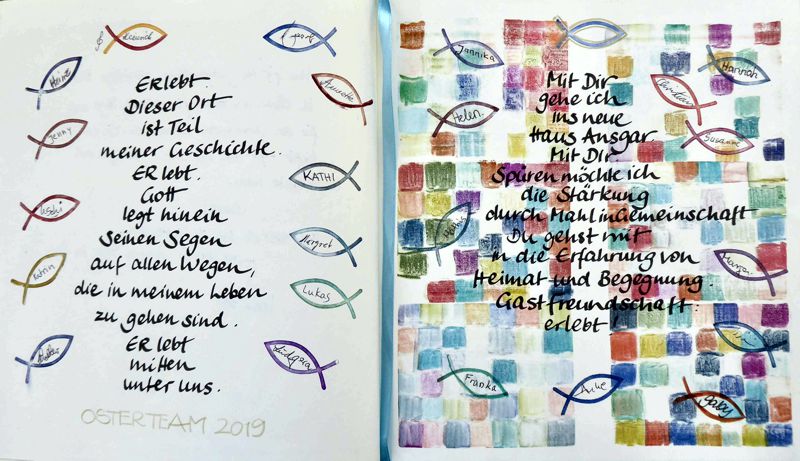 Heinz
Jenny
Uschi
Katrin
Annette
KATHI
Margret
Lukas
Erlebt.
Dieser Ort
ist Teil
meiner Geschichte.
ER lebt.
Gott
legt hinein
Seinen Segen
auf allen Wegen,
die in meinem Leben
zu gehen sind.
ER lebt
mitten
unter uns.
OSTERTEAM 2019
Jannika
Hannah
Helen.
Susanne
Mit Dir
gehe ich
ins neue
Haus Ansgar
Mit Dir
Spüren möchte ich
die Stärkung
durch Mahl in Gemeinschaft
Du gehst mit
in die Erfahrung von
Heimat und Begegnung.
Gastfreundschaft:
erlebt!
Franka
Anke
Gaby